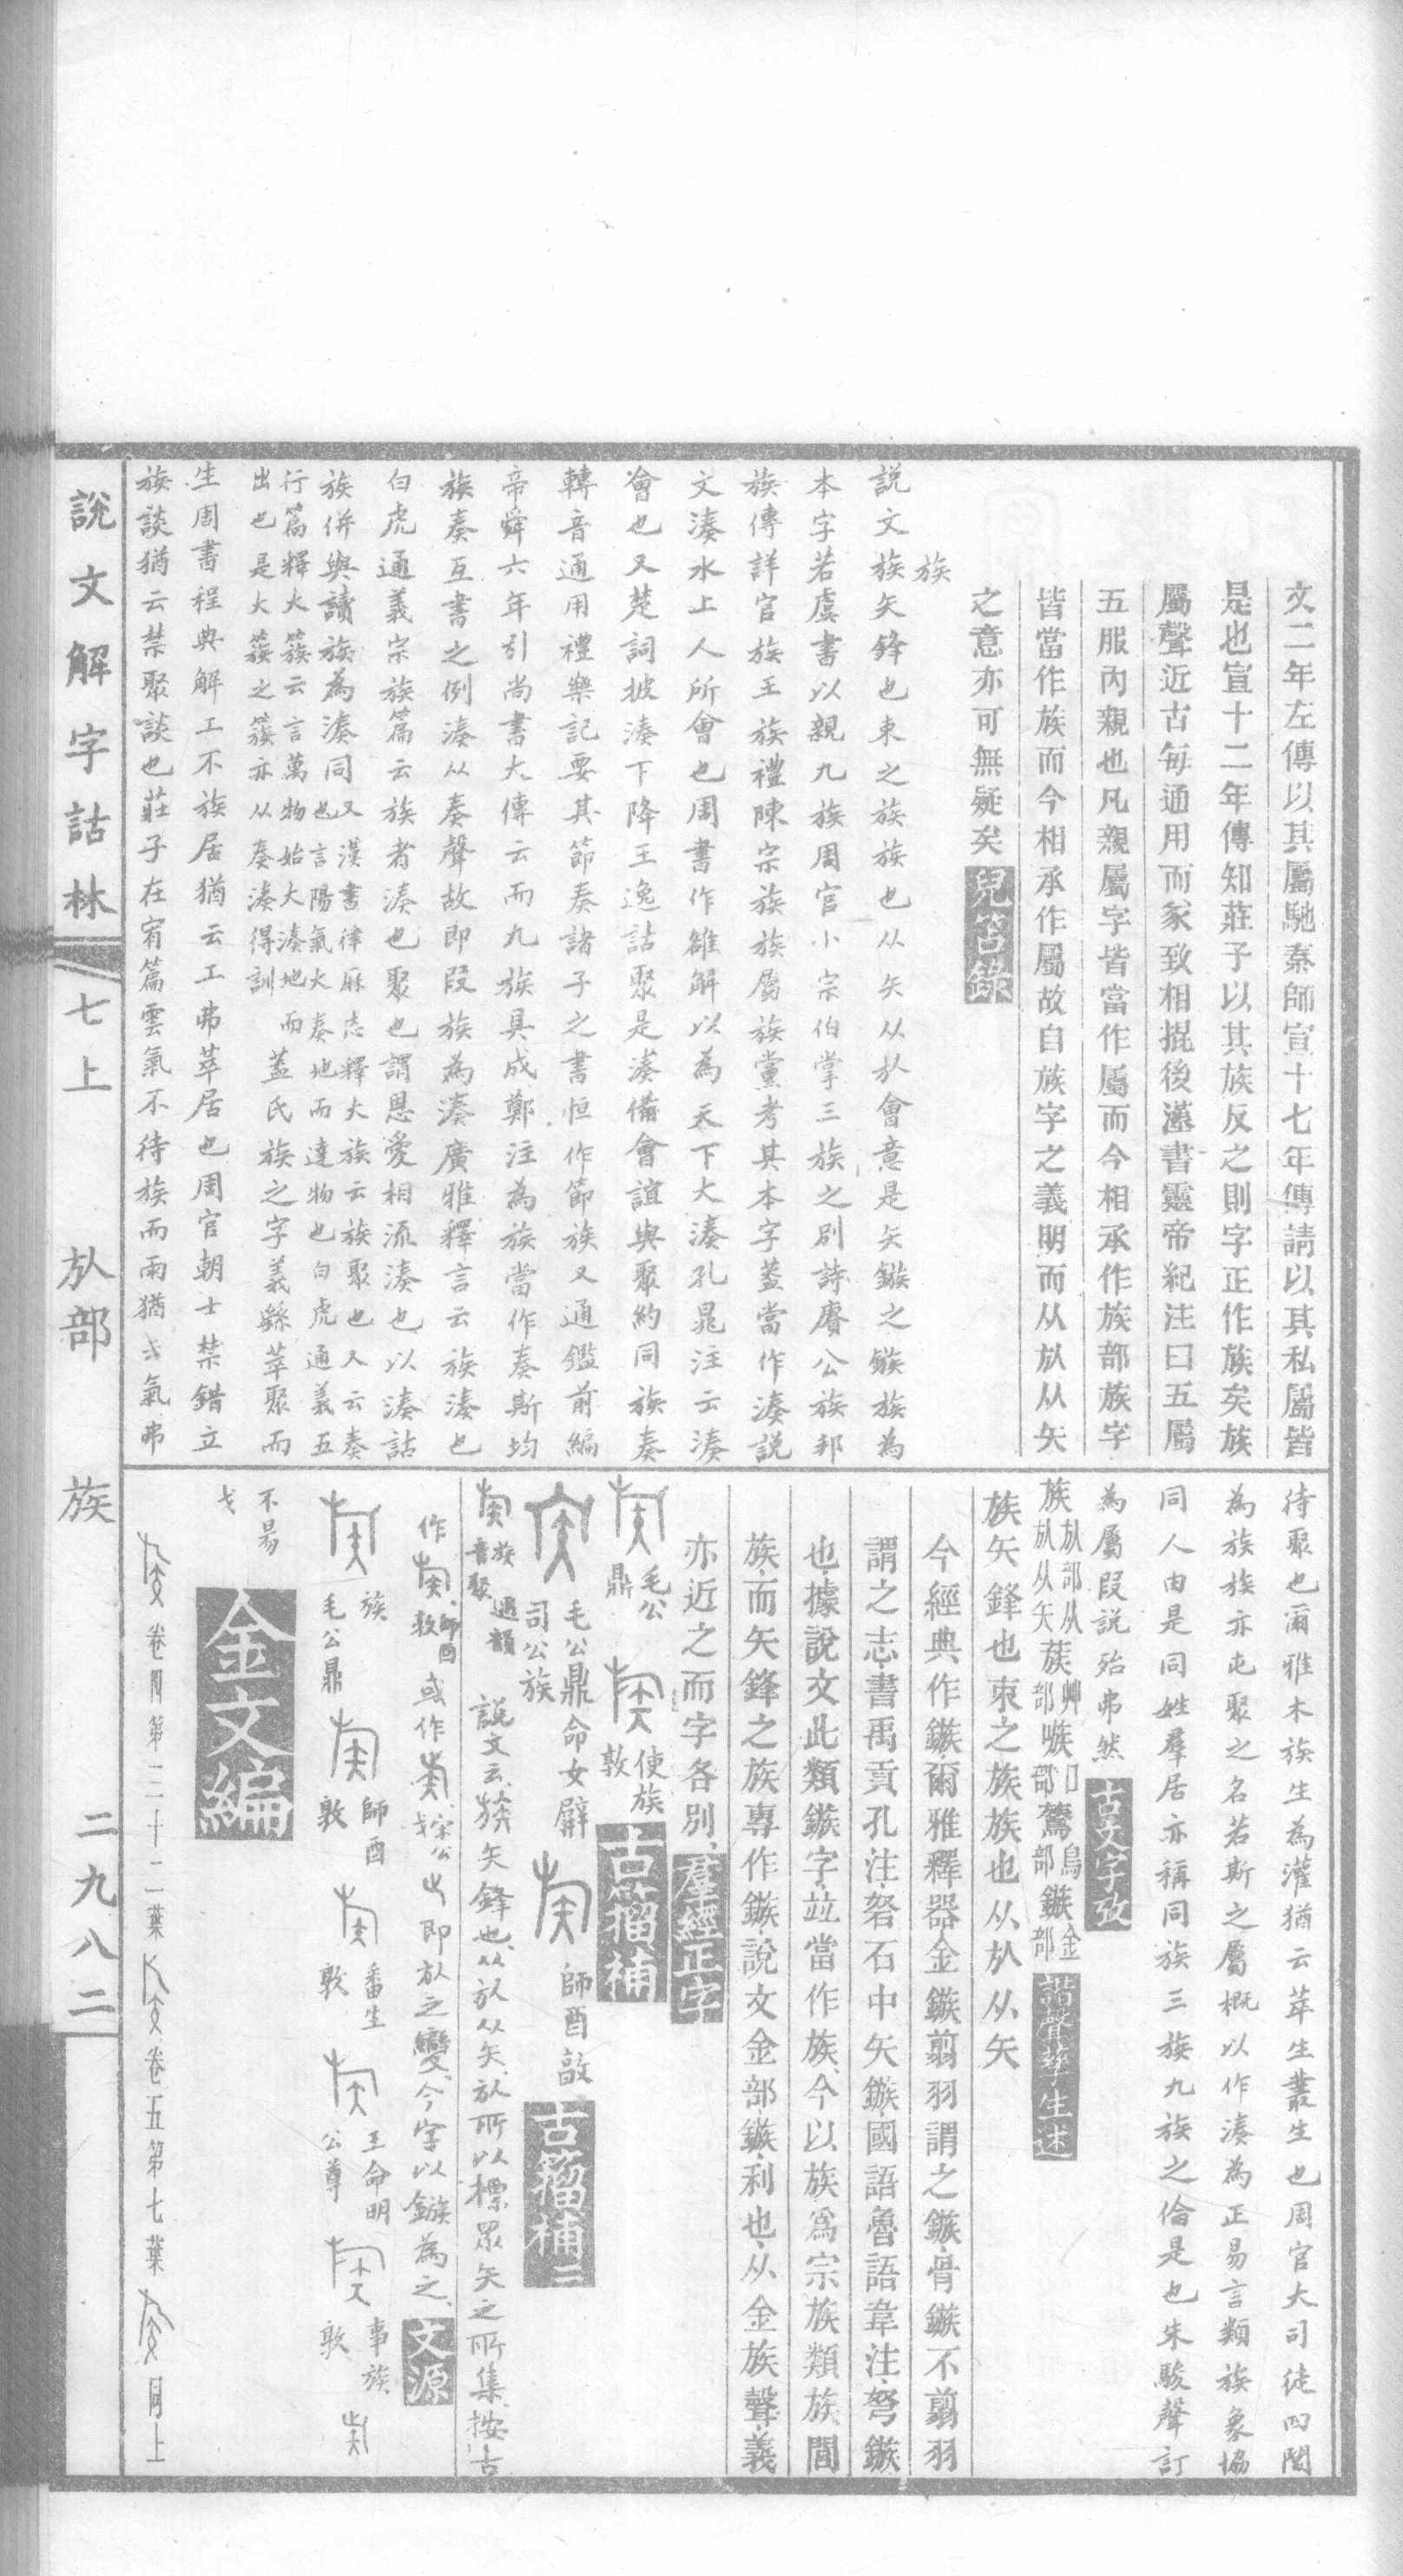 文二年左傳以其屬馳秦師宣十七年傳請以其私屬皆
是也宣十二年傳知莊子以其族反之則字正作族矣族
屬聲近古每通用而豕致相掍後漢書靈帝紀注曰五屬
五服內親也凡親屬字皆當作屬而今相承作族部族字
皆當作族而今相承作屬故自族字之義明而从㫃从矢
之意亦可無疑矣 兒笘錄
族
說文族矢鋒也束之族族也从矢从㫃會意是矢鏃之鏃族為
本字若虞書以親九族周官小宗伯掌三族之別詩麐公族邦
族傳詳官族王族禮陳宗族族屬族黨考其本字蓋當作湊說
文湊水上人所會也周書作雒解以為天下大湊孔晁注云湊
會也又楚詞披湊下降王逸詁聚是湊備會誼與聚約同族奏
轉音通用禮樂記要其節奏諸子之書恒作節族又通鑑前編
帝舜六年引尚書大傳云而九族具成鄭注為族當作奏斯均
族奏互書之例湊从奏聲故即叚族為湊廣雅釋言云族湊也
白虎通義宗族篇云族者湊也聚也謂恩愛相流湊也以湊詁
族併與讀族為湊同又漢書律厤志釋大族云族聚也又云奏
也言陽氣大奏地而達物也白虎通義五
行篇釋大簇云言萬物始大湊地而
出也是大簇之簇亦从奏湊得訓 蓋氏族之字義緐萃聚而
生周書程典解工不族居猶云工弗萃居也周官朝士禁錯立
族談猶云禁聚談也莊子在宥篇雲氣不待族而雨猶云氣弗
待聚也爾雅木族生為灌猶云萃生叢生也周官大司徒四閭
為族族亦屯聚之名若斯之屬概以作湊為正易言類族象協
同人由是同姓羣居亦稱同族三族九族之倫是也朱駿聲訂
為屬叚說殆弗然 古文字攷
族㫃部从㫃从矢 蔟艸部 嗾口部 鷟鳥部 鏃金部 諧聲孳生述
族矢鋒也束之族族也从㫃从矢
今經典作鏃爾雅釋器金鏃翦羽謂之鏃骨鏃不翦羽
謂之志書禹貢孔注砮石中矢鏃國語魯語韋注弩鏃
也據說文此類鏃字竝當作族今以族爲宗族類族閒
族而矢鋒之族專作鏃說文金部鏃利也从金族聲義
亦近之而字各別 羣經正字
毛公鼎 使族敦 古籀補
毛公鼎命女辥司公族 師酉敦 古籀補二
族 音聚 遇韻 說文云族矢鋒也从㫃从矢㫃所以標眾矢之所集按古
作 師酉敦 或作 宋公戈 即㫃之變今字以鏃為之 文源
族 毛公鼎 師酉敦 番生敦 王命明公尊 事族敦
不昜戈 金文編
卷四第三十二葉 卷五第七葉 同上
說文解字詁林 七上 㫃部 族 二九八二